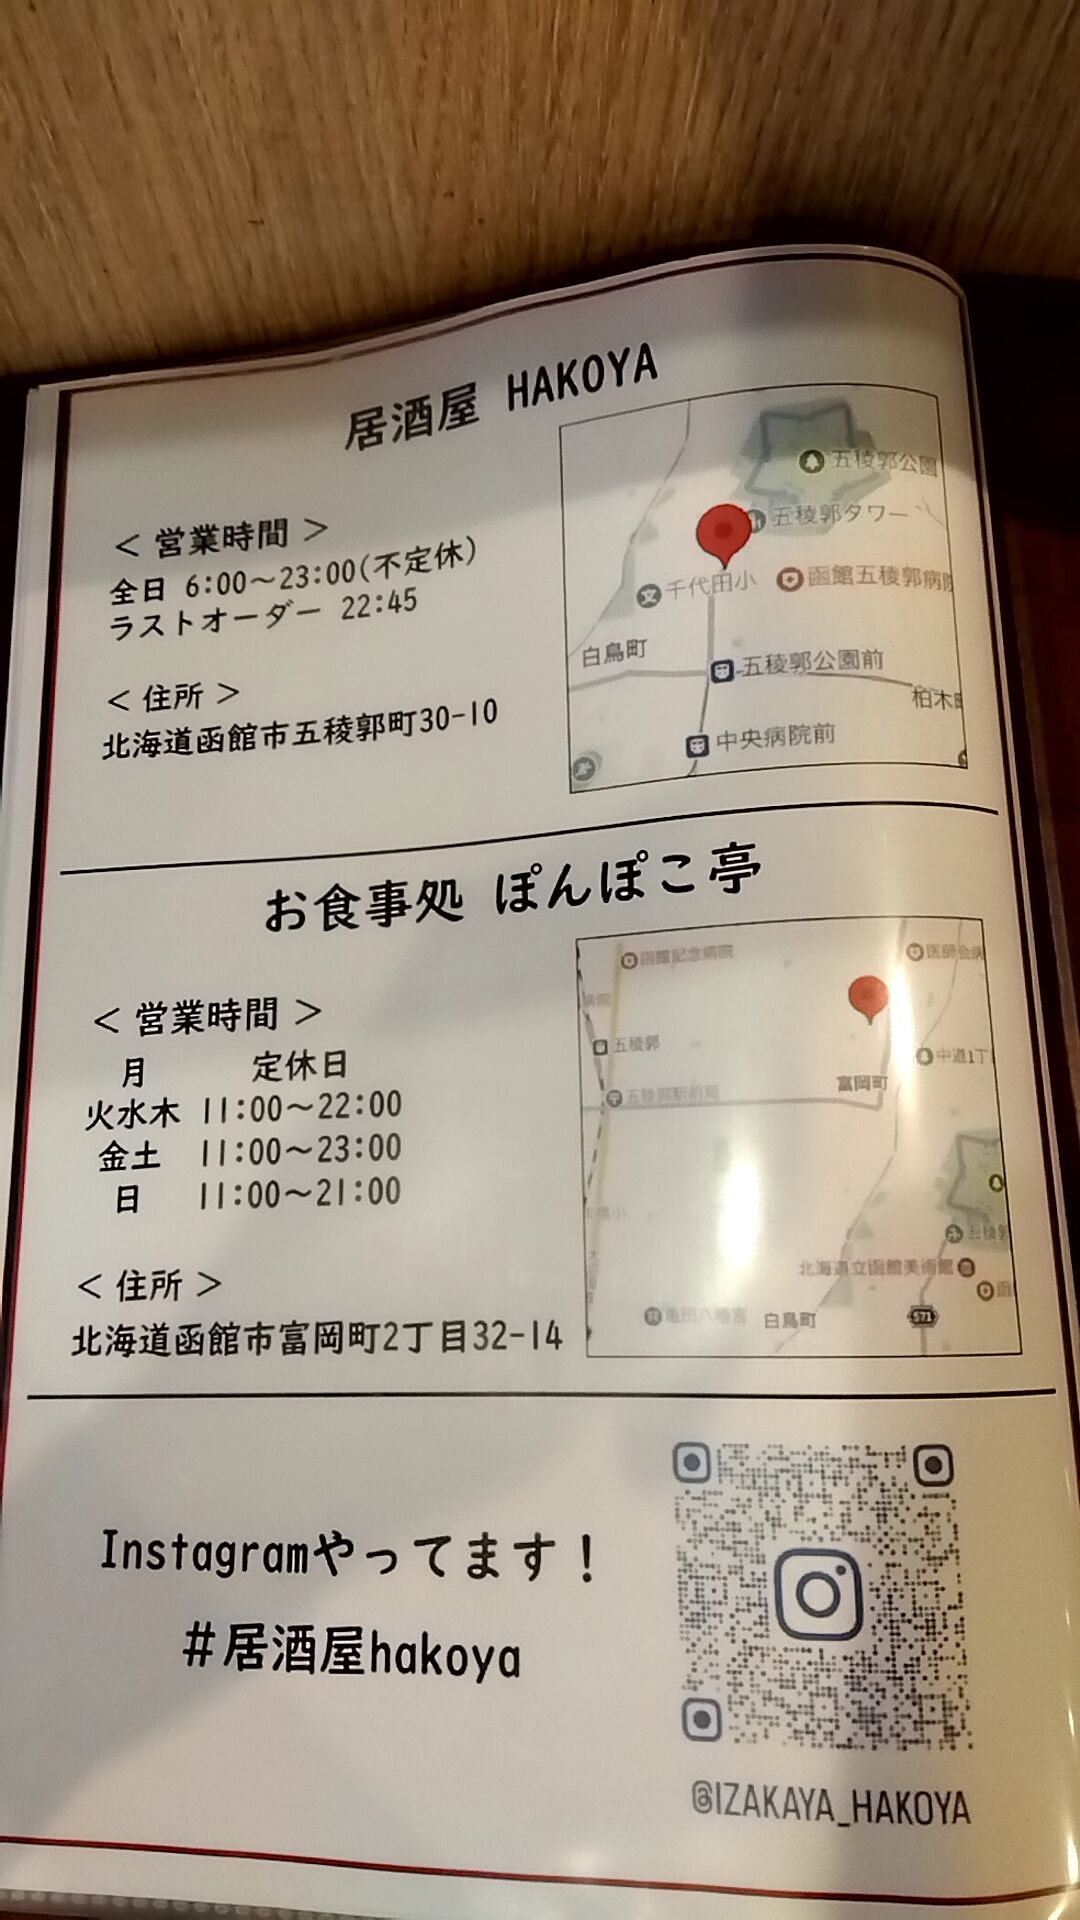 居酒屋 HAKOYA
＜ 営業時間 ＞
全日 6:00～23:00(不定休)
ラストオーダー 22:45
＜ 住所 ＞
北海道函館市五稜郭町30-10
五稜郭公園
五稜郭タワー
千代田小
函館五稜郭病院
白鳥町
五稜郭公園前
柏木町
中央病院前
お食事処 ぽんぽこ亭
＜ 営業時間 ＞
月 定休日
火水木 11:00～22:00
金土 11:00～23:00
日 11:00～21:00
＜ 住所 ＞
北海道函館市富岡町2丁目32-14
函館記念病院
医師会病
五稜郭
中道1丁
富岡町
五稜郭駅前局
五稜郭
北海道立函館美術館
函
亀田八幡宮
白鳥町
571
Instagramやってます！
＃居酒屋hakoya
@IZAKAYA_HAKOYA